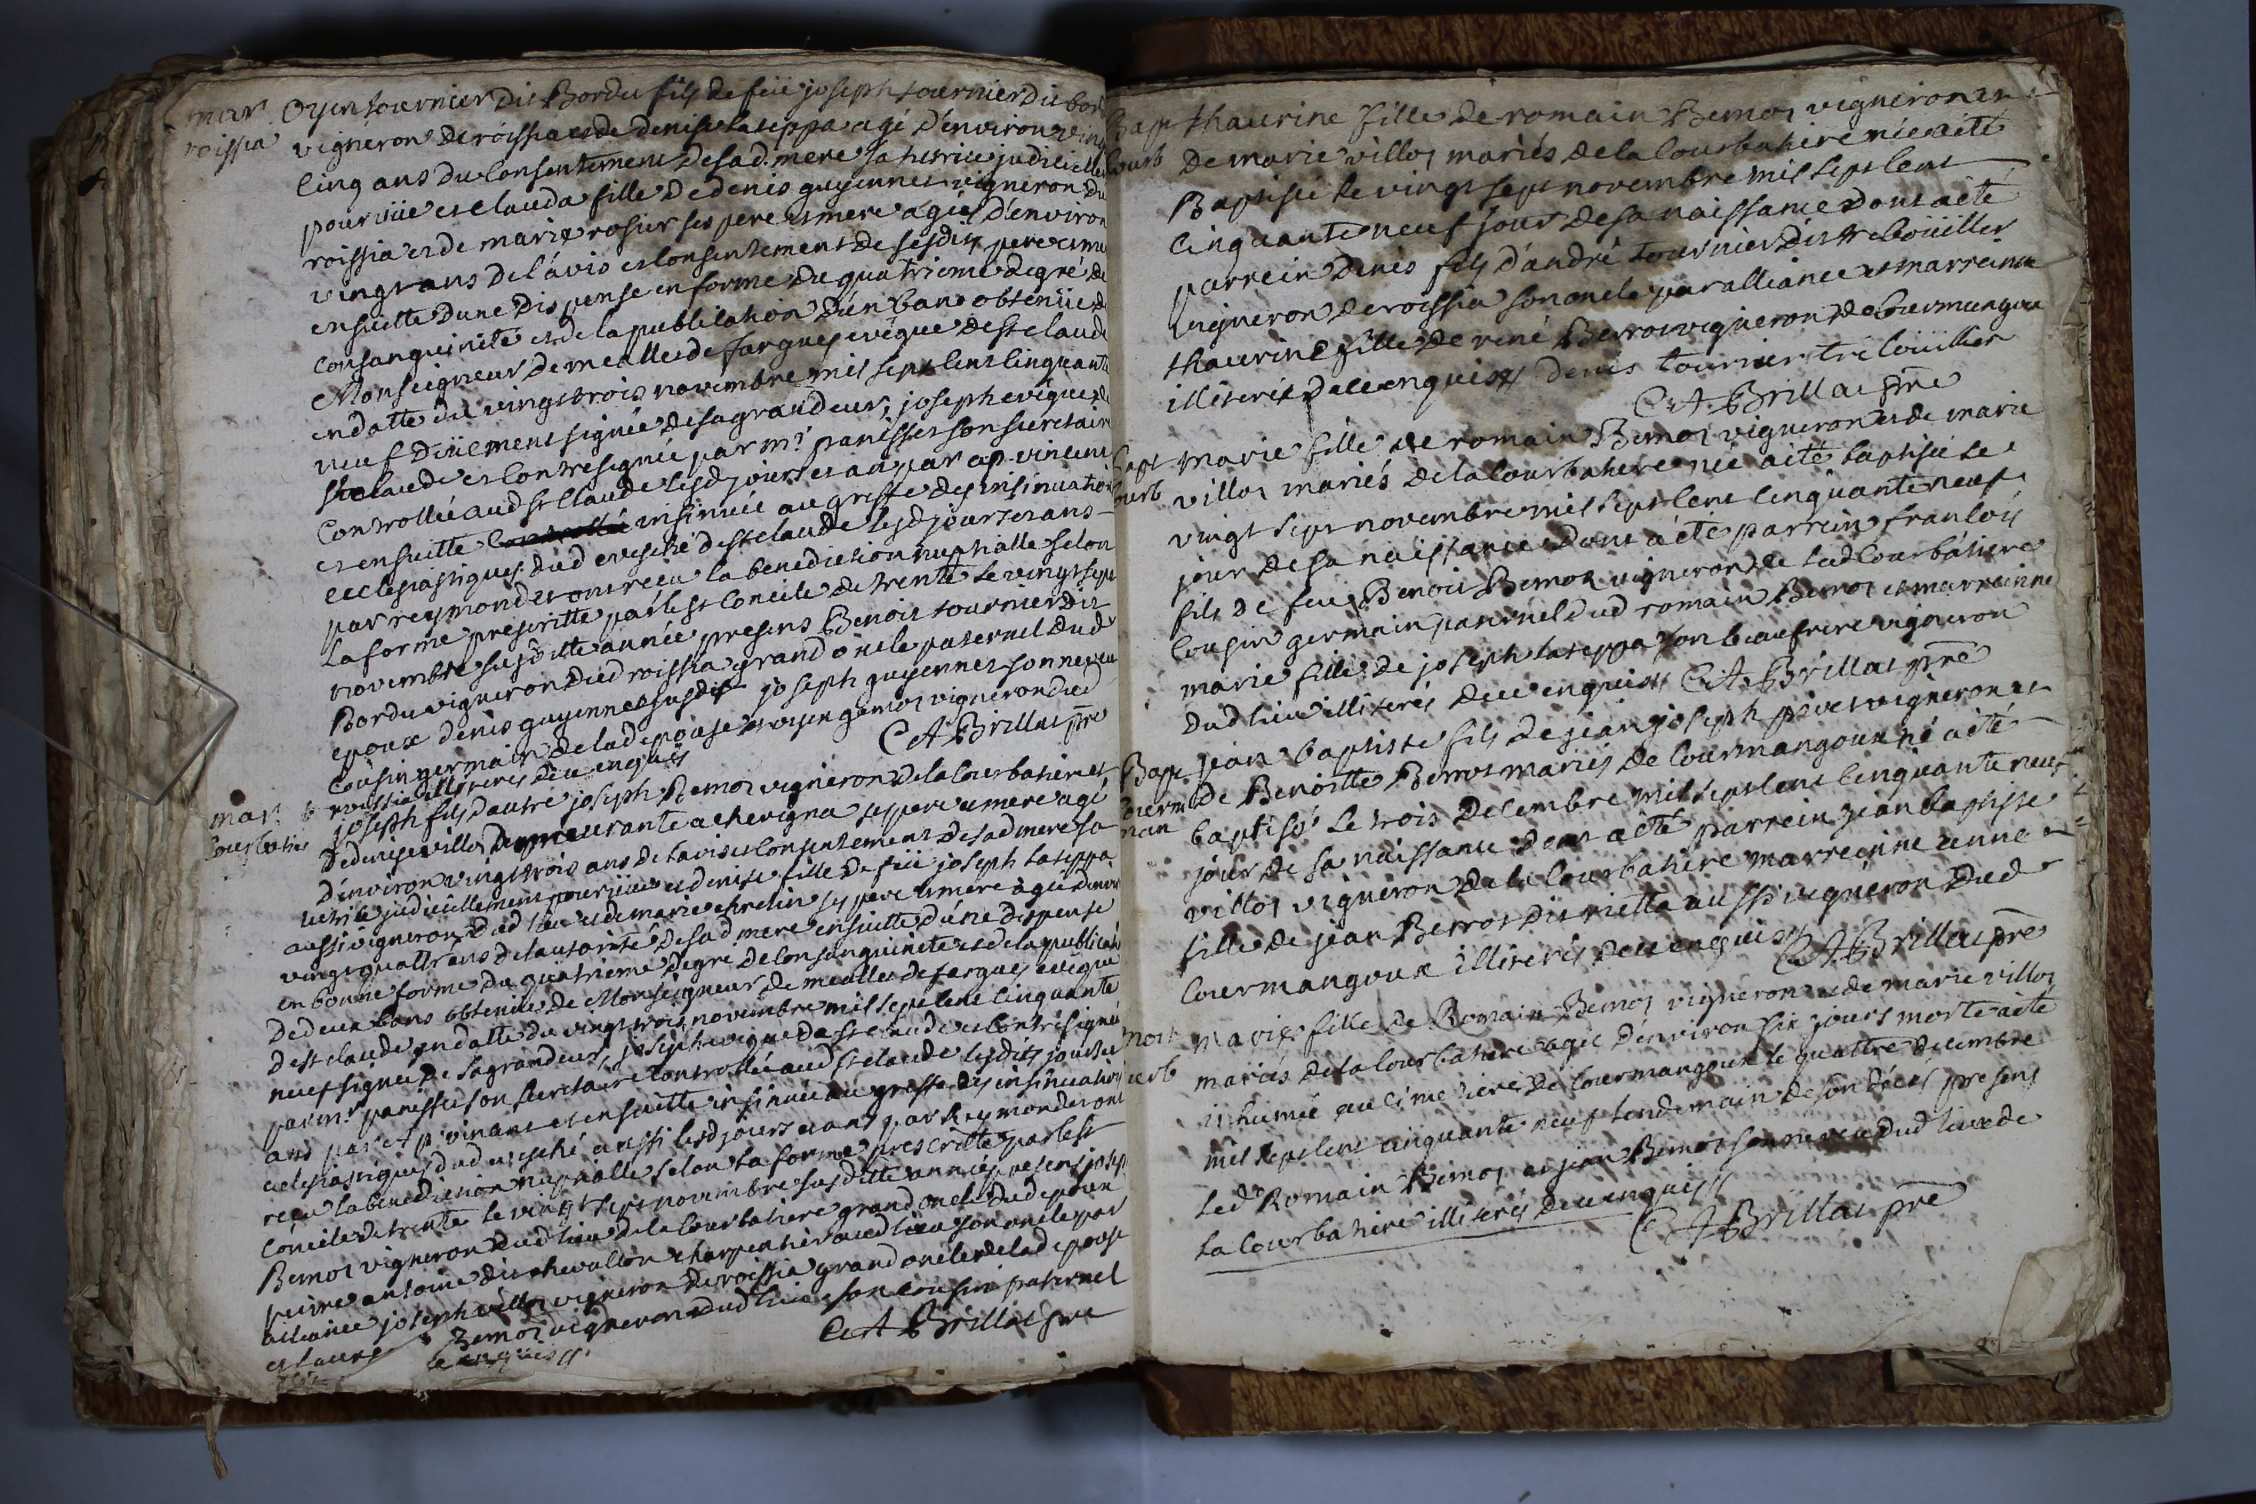 mar. Oyen tournier dit Bordu fils de feüe joseph tournier dit bor
roissia vigneron de roissia et de denise lateppa agé d'environ ving
cinq ans du consentement de sad. mere sa tutrice judicielle
pourvüe et clauda fille de denis guyennet vigneron du
roissia et de marie rosier ses pere et mere agée d'environ
vingt ans de l'avis et consentement de sesdits pere et me
ensuitte dune dispense en forme du quatrieme degré de
consanguinité et de la publication d'un ban obtenüe de
Monseigneur de mealles de fargues evêque de st claude
en datte du vingt trois novembre mil sept cent cinquante
neuf düement signée de sa grandeur, joseph evêque de
st claude et contresignée par mr. panisset son secretaire
controllée aud st Claude lesd jours et an par ap. vincent
et ensuitte insinuée au greffe des insinuation
ecclesiastiques dud evesché de st claude lesd jours et ans
par reymondet ont reçu la benediction nuptialle selon
la forme prescritte par le st concile de trente le vingt sept
novembre susditte année presens Benoit tournier dit
Bordu vigneron dud roissia grand oncle paternel dud
epoux denis guyennet susdit joseph guyennet son neveu
cousin germain de lad epouse et oyen gemot vigneron dud
roissia illiteres de ce enquis CA Brillat pre
mar. joseph fils d'autre joseph Bemot vigneron de la courbatiere et
courbatiere de denise villot demeurante a chevigna ses pere et mere agé
d'environ vingt trois ans de l'avis et consentement de sad mere sa
tutrice judiciellement pourvüe et denise fille de feüe joseph lateppa
aussi vigneron dud lieu et de marie chrelin ses pere et mere agée denvir
vingt quattre ans de l'autorité de sad mere ensuitte d'une dispense
en bonne forme du quatrieme degré de consanguinité et de la publicati
de deux bans obtenüe de Monseigneur de mealles de fargues evêque
de st claude en datte du vingt trois novembre mil sept cent cinquante
neuf signée de sa grandeur, joseph evêque de st claude et contresignée
par mr. panisset son secretaire controllée aud st claude lesdits jours et
ans par ap. vincent et ensuitte insinuée au greffe des insinuations
eclesiastiques dud evesché aussi lesd jours et ans par Reymondet ont
reçu la benediction nuptialle selon la forme prescritte par le st
concile de trente le vingt sept novembre susditte année presens josep
Bemot vigneron dud lieu de la courbatiere grand oncle dud epoux
pierre antoine dit chevallon charpentier aud lieu son oncle par
alliance joseph villot vigneron de roissia grand oncle de lad epouse
et laur Bemot vigneron dud lieu son cousin paternel
ce enquis CA Brillat pre
Bapt thaurine fille de romain Bemot vigneron et
Courb de marie villot mariés de la Courbatiere née a été
Baptisée le vingt sept novembre mil sept cent
cinquante neuf jour de sa naissance dont a été
parrein denis fils d'andré tournier dit trecoüiller
vigneron de roissia son oncle par alliance et marreinne
thaurine fille de rené Berrot vigneron de Courmangou
illiterée de ce enquise denis tournier trecoüillier
CA Brillat pre
Bapt marie fille de romain Bemot vigneron et de marie
Courb villot mariés de la Courbatiere née a été baptisée le
vingt sept novembre mil sept cent cinquante neuf
jour de sa naissance dont a été parrein francois
fils de feu Benoit Bemot vigneron de lad Courbatiere
cousin germain paternel dud romain Bemot et marreinne
marie fille de joseph lateppa son beaufrere vigneron
dud lieu illiterés de ce enquis CA Brillat pre
Bapt jean baptiste fils de jean joseph pivet vigneron et
Courm de Benoitte Berrot mariés de Courmangoux né a été
man baptisé le trois decembre mil sept cent cinquante neuf
jour de sa naissance dont a été parrein jean baptiste
villot vigneron de la Courbatiere marreinne anne
fille de jean Berrot dit riette aussi vigneron dud
Courmangoux illiterés de ce enquis CA Brillat pre
mort marie fille de Romain Bemot vigneron et de marie villot
Courb mariés de la Courbatiere agée d'environ six jours morte a été
inhumée au cimetiere de Courmangoux le quattre decembre
mil sept cent cinquante neuf lendemain de son décès presens
led Romain Bemot et jean Bemot son neveu dud lieu de
la Courbatiere illiterés de ce enquis
CA Brillat pre